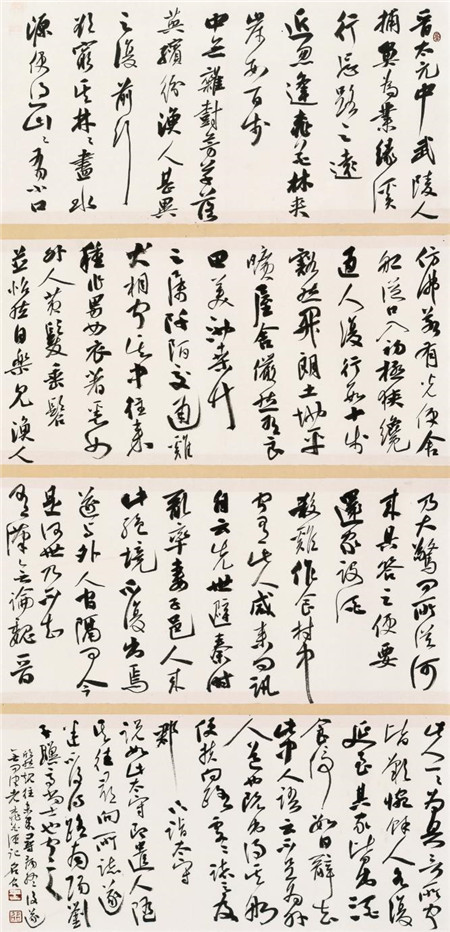 晉太元中武陵人
捕魚為業緣溪
行忘路之遠
近忽逢桃花林夾
岸數百步
中無雜樹芳草落
英繽紛漁人甚異
之復前行
欲窮其林〻盡水
源便得一山〻有小口
仿佛若有光便舍
船從口入初極狹纔
通人復行數十步
豁然開朗土地平
曠屋舍儼然有良
田美池桑竹
之屬阡陌交通雞
犬相聞其中往來
種作男女衣著悉如
外人黃髮垂髫
並怡然自樂見漁人
乃大驚問所從何
來具答之便要
還家設酒
殺雞作食村中
聞有此人咸來問訊
自云先世避秦時
亂率妻子邑人來
此絕境不復出焉
遂與外人間隔問今
是何世乃不知
有漢無論魏晉
此人一一為具言所聞
皆歎惋餘人各復
延至其家皆出酒
食停數日辭去
此中人語云不足為外
人道也既出得其船
便扶向路處〻誌之及
郡
下詣太守
說如此太守即遣人隨
其往尋向所誌遂
迷不復得路南陽劉
子驥高尚士也聞之
欣然規往未果尋病終後遂
無問津者桃花源記